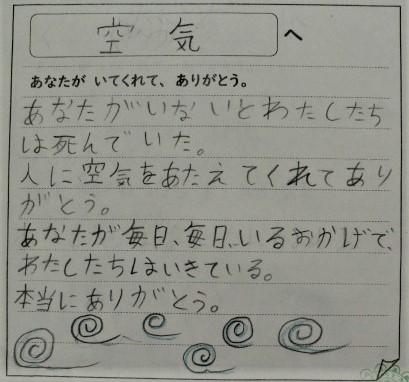 空気へ
あなたが いてくれて、ありがとう。
あなたがいないとわたしたち
は死んでいた。
人に空気をあたえてくれてあり
がとう。
あなたが毎日、毎日、いるおかげで、
わたしたちはいきている。
本当にありがとう。